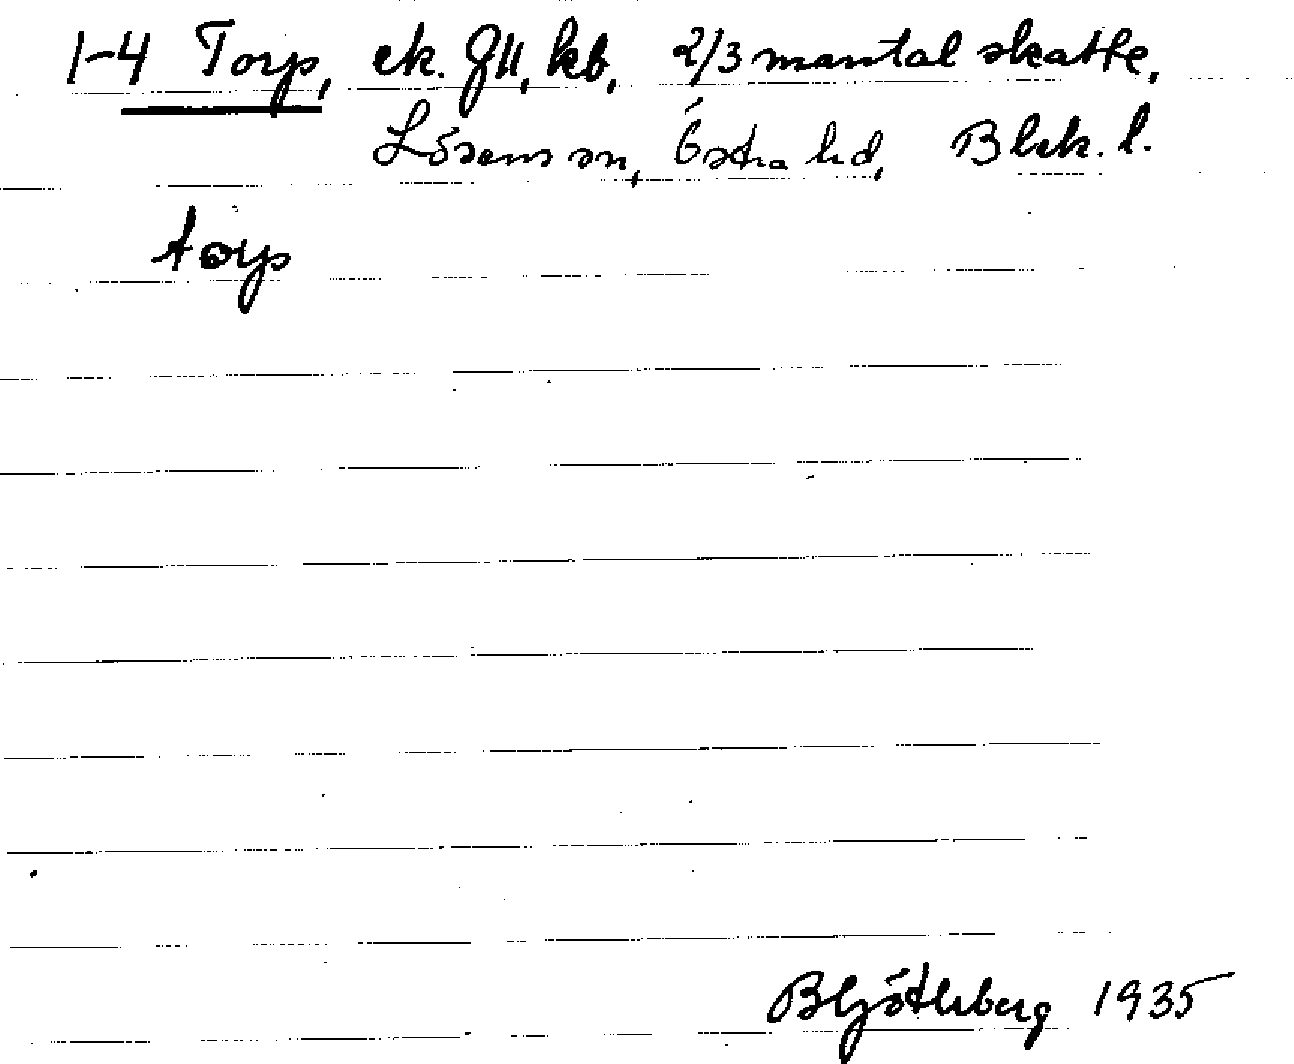 1-4 Torp, ek. JII, kb, 2/3 mantal skatte,
Lösens sn, Östra hd, Blek. l.
torp
B Götlberg 1935